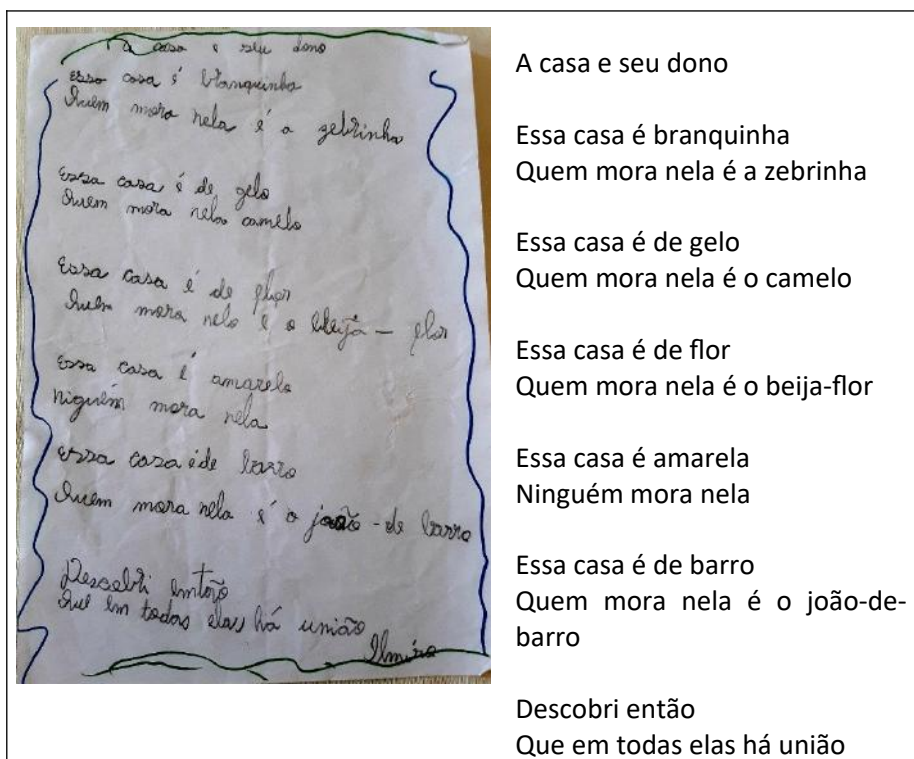 A casa e seu dono
Essa casa é branquinha
Quem mora nela é a zebrinha
Essa casa é de gelo
Quem mora nela camelo
Essa casa é de flor
Quem mora nela é o beija - flor
Essa casa é amarela
Niguém mora nela
Essa casa é de barro
Quem mora nela é o joão - de barro
Descobri então
Que em todas elas há união
A casa e seu dono
Essa casa é branquinha
Quem mora nela é a zebrinha
Essa casa é de gelo
Quem mora nela é o camelo
Essa casa é de flor
Quem mora nela é o beija-flor
Essa casa é amarela
Ninguém mora nela
Essa casa é de barro
Quem mora nela é o joão-de-
barro
Descobri então
Que em todas elas há união